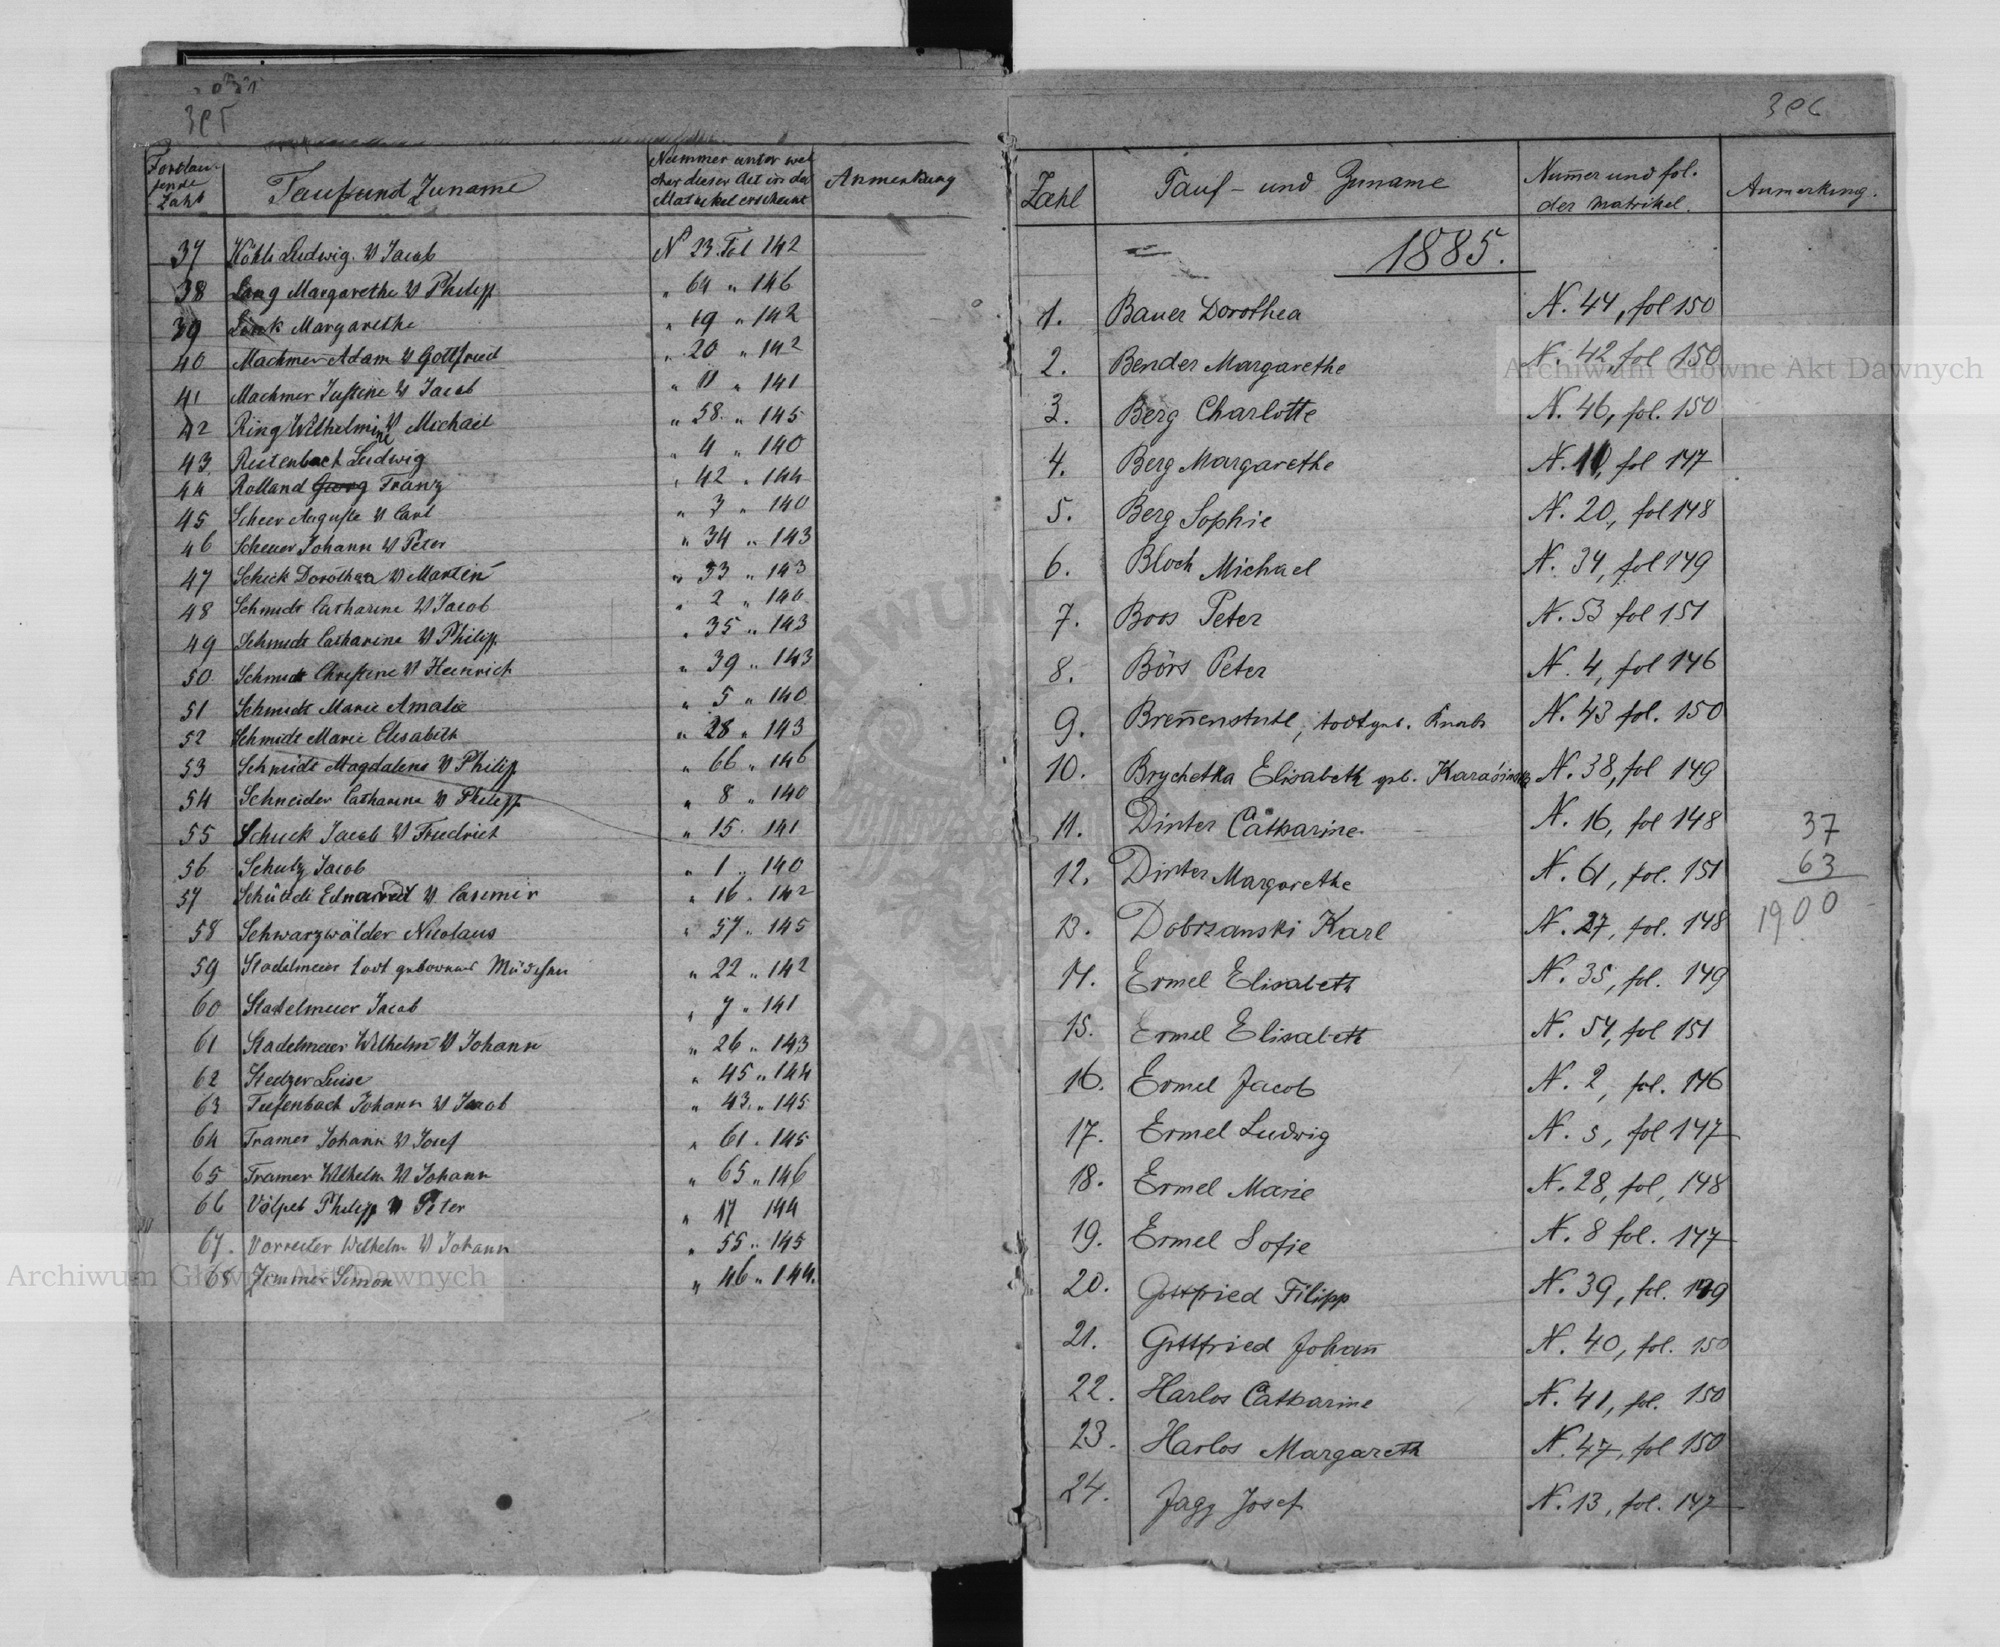 395
Fortlau-
fende
Zahl
Tauf und Zuname
Nummer unter wel
cher dieser Act in der
Matrikel erscheint
Anmerkung
37 Köhle Ludwig V Jacob N 23 Fol 142
38 Lang Margarethe V Philipp " 64 " 146
39 Link Margarethe " 19 " 142
40 Machmer Adam V Gottfried " 20 " 142
41 Machmer Justine V Jacob " 11 " 141
42 Ring Wilhelmine V Michael " 58 " 145
43 Reitenbach Ludwig " 4 " 140
44 Rolland Georg Franz " 42 " 144
45 Scheer Auguste V Carl " 3 " 140
46 Scheuer Johann V Peter " 34 " 143
47 Schick Dorothea V Martin " 33 " 143
48 Schmidt Catharine V Jacob " 2 " 140
49 Schmidt Catharine V Philipp " 35 " 143
50 Schmidt Christine V Heinrich " 39 " 143
51 Schmidt Marie Amalie " 5 " 140
52 Schmidt Marie Elisabeth " 28 " 143
53 Schmidt Magdalena V Philip " 66 " 146
54 Schneider Catharina V Philipp " 8 " 140
55 Schuck Jacob V Friedrich " 15 . 141
56 Schulz Jacob " 1 " 140
57 V Casimir " 16 " 142
58 Schwarzwälder Nicolaus " 57 " 145
59 Stadelmeier todt gebornes Mädchen " 22 " 142
60 Stadelmeier Jacob " 7 " 141
61 Stadelmeier Wilhelm V Johann " 26 " 143
62 Steltzer Luise " 45 " 144
63 Tiefenbach Johann V Jacob " 43 " 145
64 Tramer Johann V Josef " 61 " 145
65 Tramer Wilhelm V Johann " 65 " 146
66 Völpel Philipp V Peter " 17 144
67. Vorreiter Wilhelm V Johann " 55 " 145
68 Zemmer Simon " 46 " 144.
396
Zahl
Tauf- und Zuname
Num̄er und fol.
der Matrikel.
Anmerkung.
1885.
1. Bauer Dorothea N. 44, fol 150
2. Bender Margarethe N. 42, fol 150
3. Berg Charlotte N. 46, fol. 150
4. Berg Margarethe N. 10, fol 147
5. Berg Sophie N. 20, fol 148
6. Bloch Michael N. 34, fol 149
7. Boos Peter N. 53 fol 151
8. Börs Peter N. 4, fol 146
9. Breñenstuhl, todtgeb. Knabe N. 43 fol. 150
10. Brychetka Elisabeth geb. Karasinska N. 38, fol 149
11. Dinter Catharine N. 16, fol 148
37
12. Dinter Margarethe N. 61, fol. 151
63
13. Dobrzanski Karl N. 27, fol. 148
1900
14. Ermel Elisabeth N. 35, fol. 149
15. Ermel Elisabeth N. 54, fol 151
16. Ermel Jacob N. 2, fol. 146
17. Ermel Ludwig N. 5, fol 147
18. Ermel Marie N. 28, fol, 148
19. Ermel Sofie N. 8 fol. 147
20. Gottfried Filipp N. 39, fol. 149
21. Gottfried Johañ N. 40, fol. 150
22. Harlos Catharine N. 41, fol. 150
23. Harlos Margareth N. 47, fol 150
24. Jagg Josef N. 13, fol. 147
Archiwum Główne Akt Dawnych
Archiwum Główne Akt Dawnych